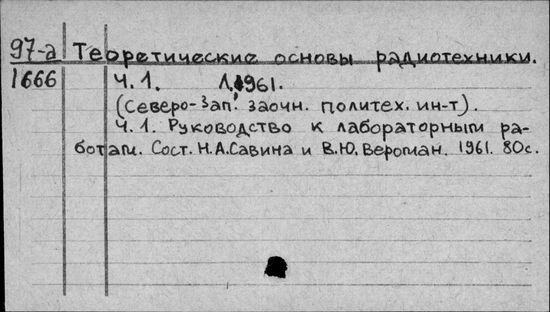 97-а Теоретические основы радиотехники.
1666 Ч. 1. Л., 1961.
(Северо-Зап. заочн. политех. ин-т).
Ч. 1. Руководство к лабораторным ра-
ботам. Сост. Н.А.Савина и В.Ю.Вероман. 1961. 80с.